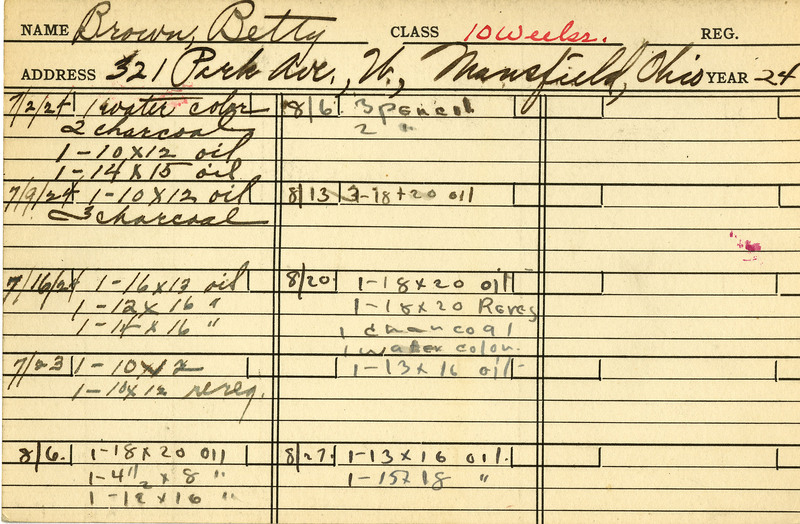 NAME Brown, Betty CLASS 10 Weeks. REG.
ADDRESS 321 Park Ave., W., Mansfield, Ohio YEAR 24
7/2/24 1 water color
2 charcoal
1-10x12 oil
1-14x15 oil
7/9/24 1-10x12 oil
3 charcoal
7/16/24 1-16x12 oil
1-12x16 "
1-14x16 "
7/23 1-10x12
1-10x12 rereg.
8/6. 1-18x20 oil
1-4 1/2 x 8 "
1-12x16 "
8/6 3 pencil
2 "
8/13 3-18+20 oil
8/20 1-18x20 oil
1-18x20 Rereg
1 charcoal
1 water color.
1-13x16 oil
8/27. 1-13x16 oil.
1-15x18 "